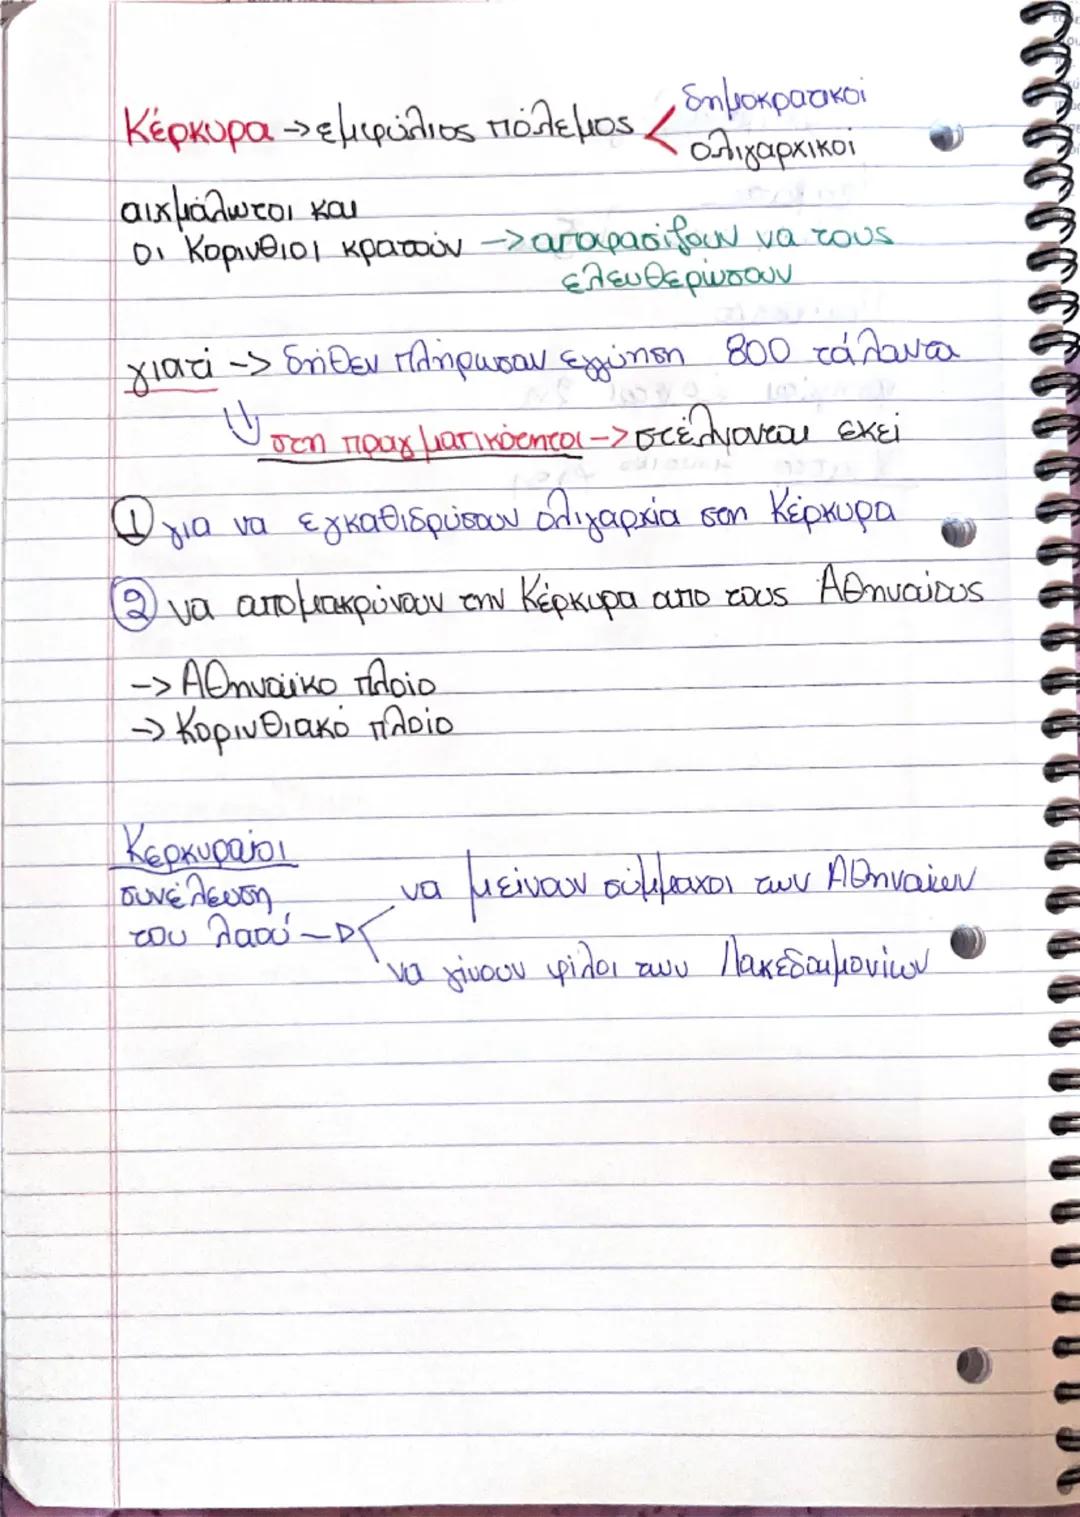 Κέρκυρα -> εμφύλιος πόλεμος < δημοκρατικοί
ολιγαρχικοί
αιχμάλωτοι και
οι Κορινθιοι κρατούν -> αποφασίζουν να τους
ελευθερώσουν
γιατί -> δήθεν πλήρωσαν εγγύηση 800 τάλαντα
στη πραγματικότητα -> στέλνονται εκεί
① για να εγκαθιδρύσουν ολιγαρχία στη Κέρκυρα
② να απομακρύνουν την Κέρκυρα απο τους Αθηναίους
-> Αθηναϊκο πλοίο
-> Κορινθιακό πλοίο
Κερκυραίοι
συνέλευση
του λαού
να μείνουν σύμμαχοι των Αθηναίων
να γίνουν φίλοι των Λακεδαιμονίων